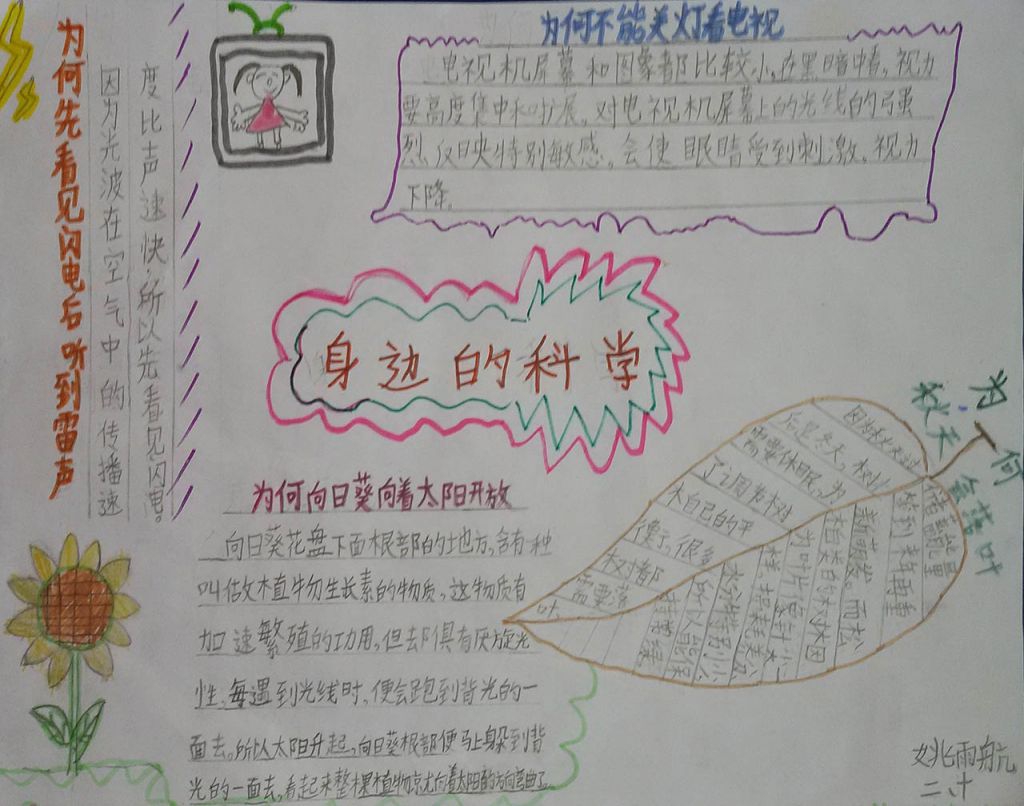 为何先看见闪电后听到雷声
因为光波在空气中的传播速
度比声速快,所以先看见闪电。
为何不能关灯看电视
电视机屏幕和图象都比较小,在黑暗中看,视力
要高度集中和扩展,对电视机屏幕上的光线的强
烈反映特别敏感,会使眼睛受到刺激,视力
下降。
身边的科学
为何向日葵向着太阳开放
向日葵花盘下面根部的地方,含有一种
叫做植物生长素的物质,这物质有
加速繁殖的功用,但却俱有厌旋光
性,每遇到光线时,便会跑到背光的一
面去。所以太阳升起,向日葵根部便马上躲到背
光的一面去,看起来整棵植物就尤向着太阳的方向弯曲了
为何
秋天
会落叶
因为秋天过
后是冬天,树木
需要休眠,为
了调节树
木自己的平
衡,很多
树都
需要落
叶
储能量
等到春再重
新萌发。而松
柏类的树林因
为叶片是针
样,损耗养
水分特别小
所以能保
持常绿
姚雨航
二、十